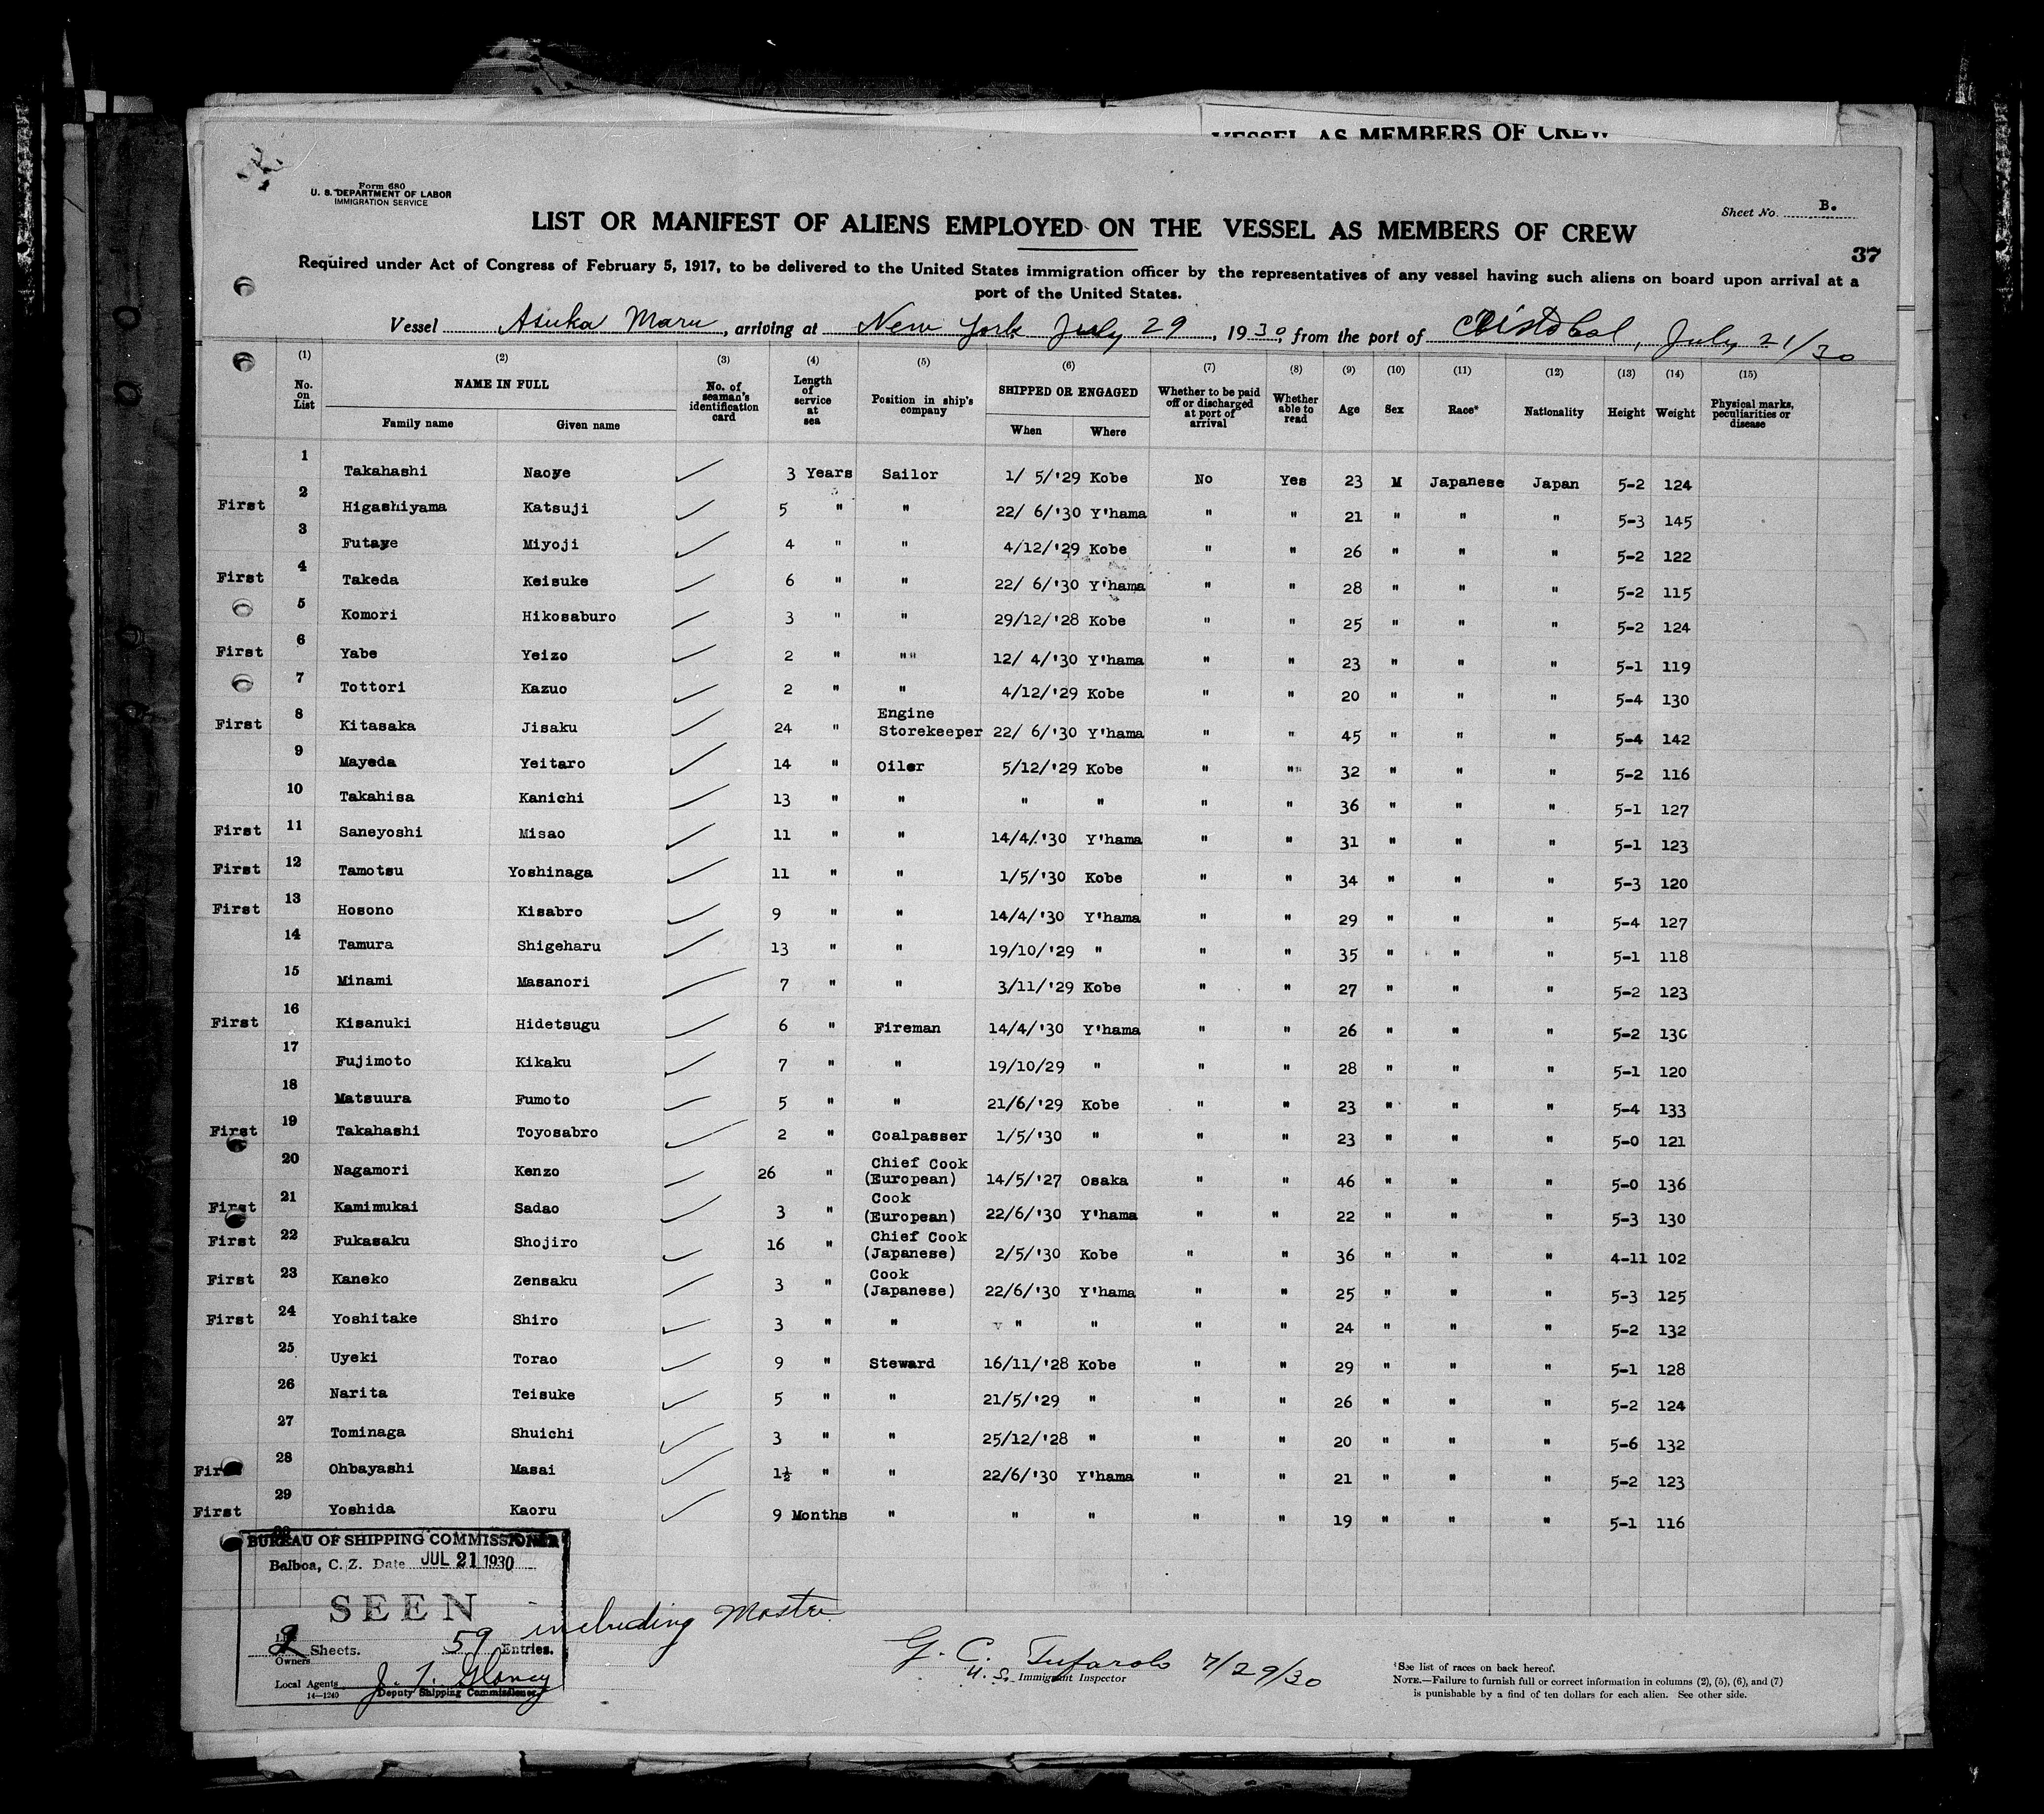 VESSEL AS MEMBERS OF CREW
Form 680
U. S. DEPARTMENT OF LABOR
IMMIGRATION SERVICE
Sheet No. B.
LIST OR MANIFEST OF ALIENS EMPLOYED ON THE VESSEL AS MEMBERS OF CREW
37
Required under Act of Congress of February 5, 1917, to be delivered to the United States immigration officer by the representatives of any vessel having such aliens on board upon arrival at a
port of the United States.
Vessel Asuka Maru, arriving at New York July 29, 1930, from the port of Cristobal, July 21/30
(1) (2) (3) (4) (5) (6) (7) (8) (9) (10) (11) (12) (13) (14) (15)
No. on List NAME IN FULL Family name Given name No. of seaman's identification card Length of service at sea Position in ship's company SHIPPED OR ENGAGED When Where Whether to be paid off or discharged at port of arrival Whether able to read Age Sex Race* Nationality Height Weight Physical marks, peculiarities or disease
1 Takahashi Naoye 3 Years Sailor 1/ 5/'29 Kobe No Yes 23 M Japanese Japan 5-2 124
First 2 Higashiyama Katsuji 5 " " 22/ 6/'30 Y'hama " " 21 " " " 5-3 145
3 Futaye Miyoji 4 " " 4/12/'29 Kobe " " 26 " " " 5-2 122
First 4 Takeda Keisuke 6 " " 22/ 6/'30 Y'hama " " 28 " " " 5-2 115
5 Komori Hikosaburo 3 " " 29/12/'28 Kobe " " 25 " " " 5-2 124
First 6 Yabe Yeizo 2 " "" 12/ 4/'30 Y'hama " " 23 " " " 5-1 119
7 Tottori Kazuo 2 " " 4/12/'29 Kobe " " 20 " " " 5-4 130
First 8 Kitasaka Jisaku 24 " Engine Storekeeper 22/ 6/'30 Y'hama " " 45 " " " 5-4 142
9 Mayeda Yeitaro 14 " Oiler 5/12/'29 Kobe " "" 32 " " " 5-2 116
10 Takahisa Kanichi 13 " " " " " " 36 " " " 5-1 127
First 11 Saneyoshi Misao 11 " " 14/4/'30 Y'hama " " 31 " " " 5-1 123
First 12 Tamotsu Yoshinaga 11 " " 1/5/'30 Kobe " " 34 " " " 5-3 120
First 13 Hosono Kisabro 9 " " 14/4/'30 Y'hama " " 29 " " " 5-4 127
14 Tamura Shigeharu 13 " " 19/10/'29 " " " 35 " " " 5-1 118
15 Minami Masanori 7 " " 3/11/'29 Kobe " " 27 " " " 5-2 123
First 16 Kisanuki Hidetsugu 6 " Fireman 14/4/'30 Y'hama " " 26 " " " 5-2 130
17 Fujimoto Kikaku 7 " " 19/10/29 " " " 28 " " " 5-1 120
18 Matsuura Fumoto 5 " " 21/6/'29 Kobe " " 23 " " " 5-4 133
First 19 Takahashi Toyosabro 2 " Coalpasser 1/5/'30 " " " 23 " " " 5-0 121
20 Nagamori Kenzo 26 " Chief Cook (European) 14/5/'27 Osaka " " 46 " " " 5-0 136
First 21 Kamimukai Sadao 3 " Cook (European) 22/6/'30 Y'hama " " 22 " " " 5-3 130
First 22 Fukasaku Shojiro 16 " Chief Cook (Japanese) 2/5/'30 Kobe " " 36 " " " 4-11 102
First 23 Kaneko Zensaku 3 " Cook (Japanese) 22/6/'30 Y'hama " " 25 " " " 5-3 125
First 24 Yoshitake Shiro 3 " " " " " " 24 " " " 5-2 132
25 Uyeki Torao 9 " Steward 16/11/'28 Kobe " " 29 " " " 5-1 128
26 Narita Teisuke 5 " " 21/5/'29 " " " 26 " " " 5-2 124
27 Tominaga Shuichi 3 " " 25/12/'28 " " " 20 " " " 5-6 132
First 28 Ohbayashi Masai 1½ " " 22/6/'30 Y'hama " " 21 " " " 5-2 123
First 29 Yoshida Kaoru 9 Months " " " " " 19 " " " 5-1 116
BUREAU OF SHIPPING COMMISSIONER
Balboa, C. Z. Date JUL 21 1930
SEEN
2 Sheets. 59 Entries. including Master
Owners
Local Agents
14-1240 Deputy Shipping Commissioner
G. C. Tufarolo 7/29/30
U. S. Immigrant Inspector
*See list of races on back hereof.
NOTE.—Failure to furnish full or correct information in columns (2), (5), (6), and (7)
is punishable by a find of ten dollars for each alien. See other side.